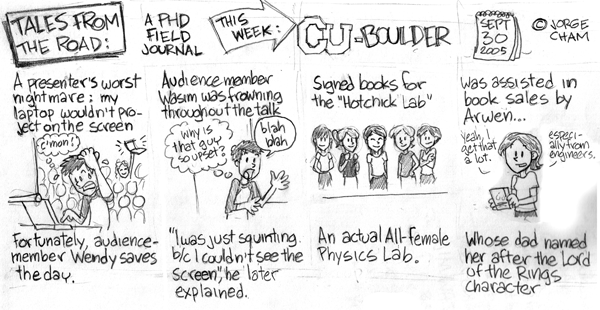 TALES FROM
THE ROAD:
A PHD
FIELD
JOURNAL
THIS
WEEK:
CU-BOULDER
SEPT
30
2005
© JORGE
CHAM
A presenter's worst
nightmare: my
laptop wouldn't pro-
ject on the screen
c'mon?
Fortunately, audience-
member Wendy saves
the day.
Audience member
Wasim was frowning
throughout the talk
why is
that guy
so upset?
blah
blah
"I was just squinting
b/c I couldn't see the
screen", he later
explained.
Signed books for
the "Hotchick Lab"
An actual All-female
Physics Lab.
was assisted in
book sales by
Arwen...
Yeah, I
get that
a lot.
especi-
ally from
engineers.
Whose dad named
her after the Lord
of the Rings
character